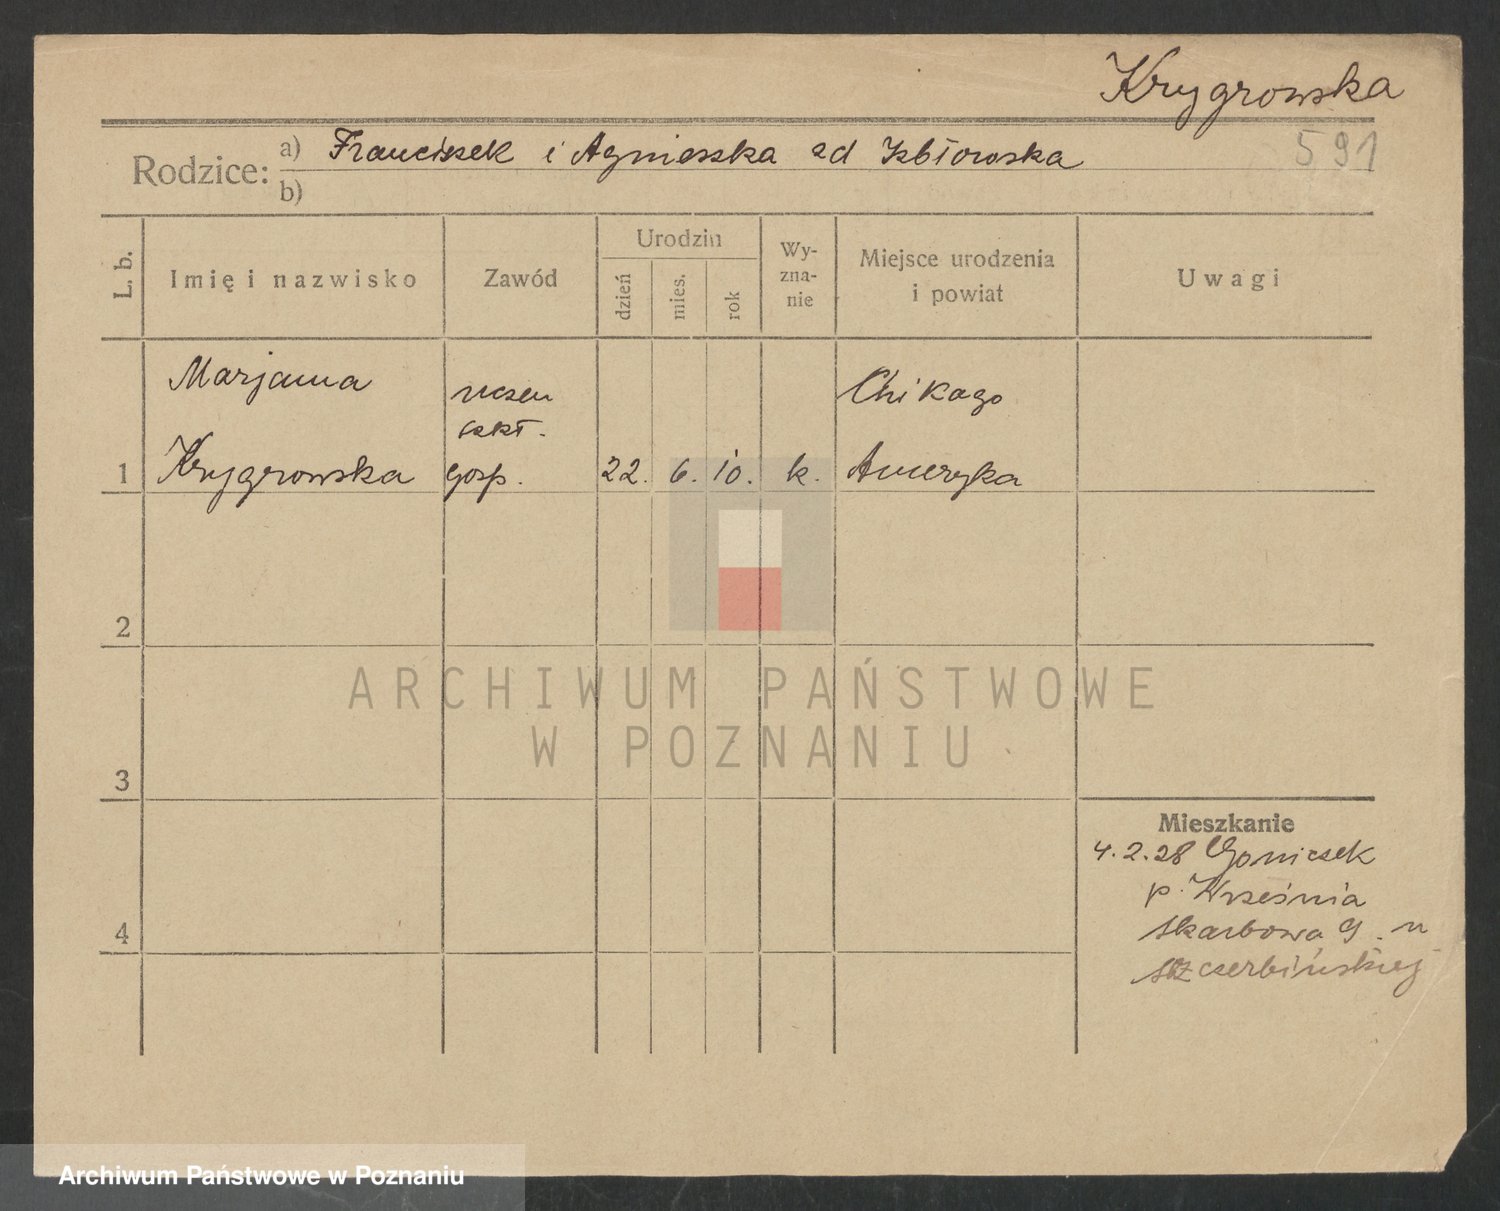 Krygrowska
591
Rodzice: a) Franciszek i Agnieszka zd Izbłowska
b)
L. b.
Imię i nazwisko
Zawód
Urodzin
dzień
mies.
rok
Wy-
zna-
nie
Miejsce urodzenia
i powiat
Uwagi
Marjanna
uczen
szkł.
Chikago
1 Krygrowska gosp. 22. 6. 10. k. Ameryka
2
3
4
Mieszkanie
4.2.28 Goniczek
p. Września
Skarbowa 9. u
Szczerbińskiej
ARCHIWUM PAŃSTWOWE
W POZNANIU
Archiwum Państwowe w Poznaniu